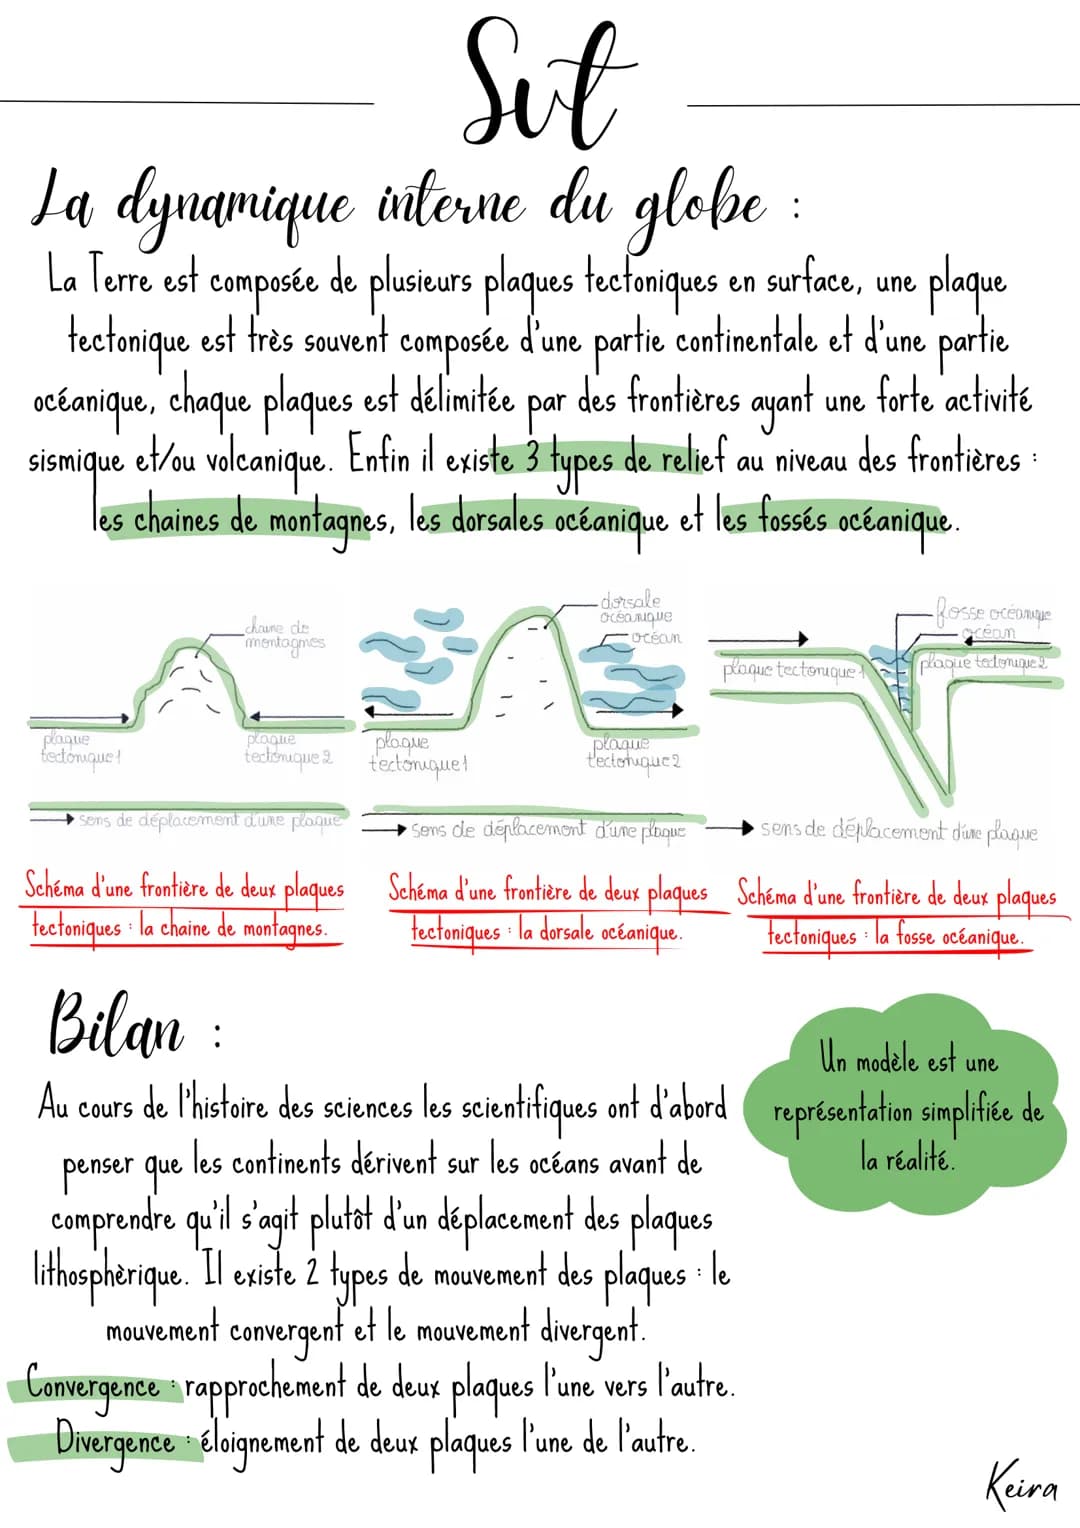 Svt
La dynamique interne du globe :
La Terre est composée de plusieurs plaques tectoniques en surface, une plaque
tectonique est très souvent composée d'une partie continentale et d'une partie
océanique, chaque plaques est délimitée par des frontières ayant une forte activité
sismique et/ou volcanique. Enfin il existe 3 types de relief au niveau des frontières :
les chaines de montagnes, les dorsales océanique et les fossés océanique.
chaine de
montagnes
plaque
tectonique 1
plaque
tectonique 2
sens de déplacement d'une plaque
dorsale
océanique
océan
plaque
tectonique 1
plaque
tectonique 2
sens de déplacement d'une plaque
fosse océanique
océan
plaque tectonique 1
plaque tectonique 2
sens de déplacement d'une plaque
Schéma d'une frontière de deux plaques
tectoniques : la chaine de montagnes.
Schéma d'une frontière de deux plaques
tectoniques : la dorsale océanique.
Schéma d'une frontière de deux plaques
tectoniques : la fosse océanique.
Bilan :
Au cours de l'histoire des sciences les scientifiques ont d'abord
penser que les continents dérivent sur les océans avant de
comprendre qu'il s'agit plutôt d'un déplacement des plaques
lithosphèrique. Il existe 2 types de mouvement des plaques : le
mouvement convergent et le mouvement divergent.
Convergence : rapprochement de deux plaques l'une vers l'autre.
Divergence : éloignement de deux plaques l'une de l'autre.
Un modèle est une
représentation simplifiée de
la réalité.
Keira